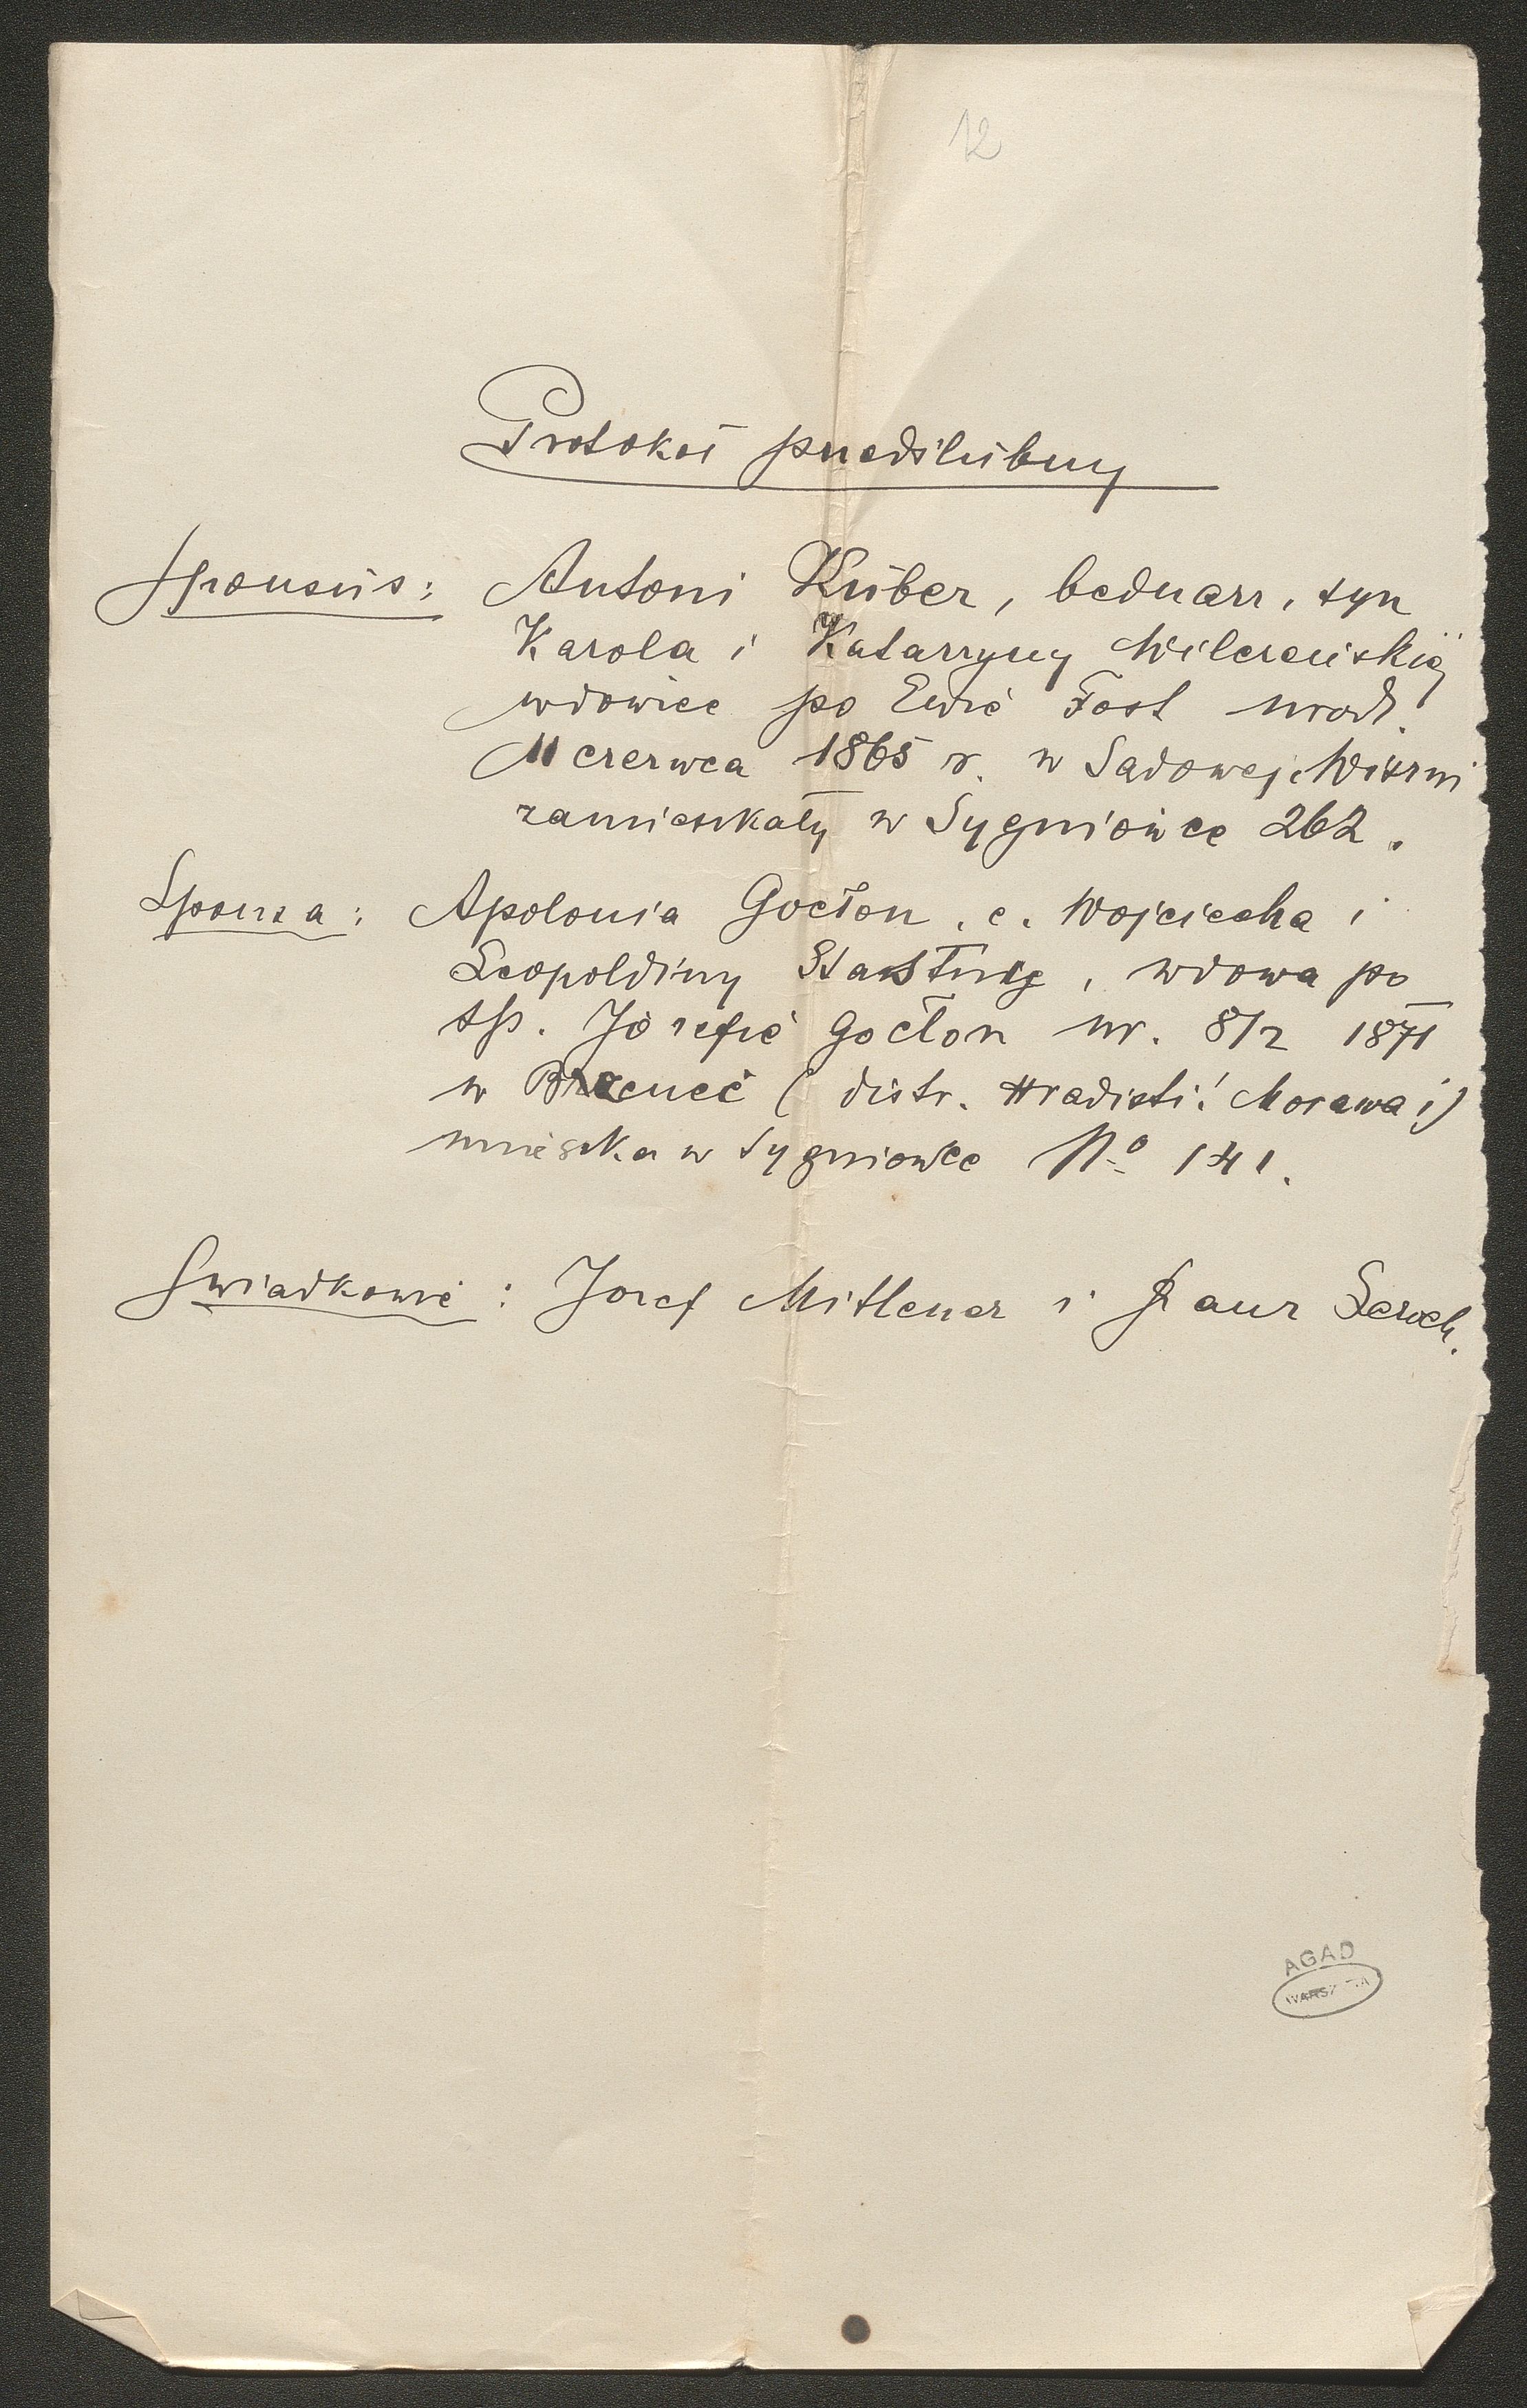 12
Protokół przedślubny
Sponsus: Antoni Kuber, bednarz, syn
Karola i Katarzyny Wilczewskiej
wdowiec po Ewie Fost urodz.
11 czerwca 1865 r. w Sądowej Wiszni
zamieszkały w Sygniówce 262.
Sponsa: Apolonia Gocłon, c. Wojciecha i
Leopoldiny, wdowa po
śp. Józefie Gocłon ur. 8/2 1871
w (distr. Hradisti! Morawa i)
mieszka w Sygniówce No 141.
Świadkowie: Józef Mitlener i Lerch.
AGAD
WARSZAWA